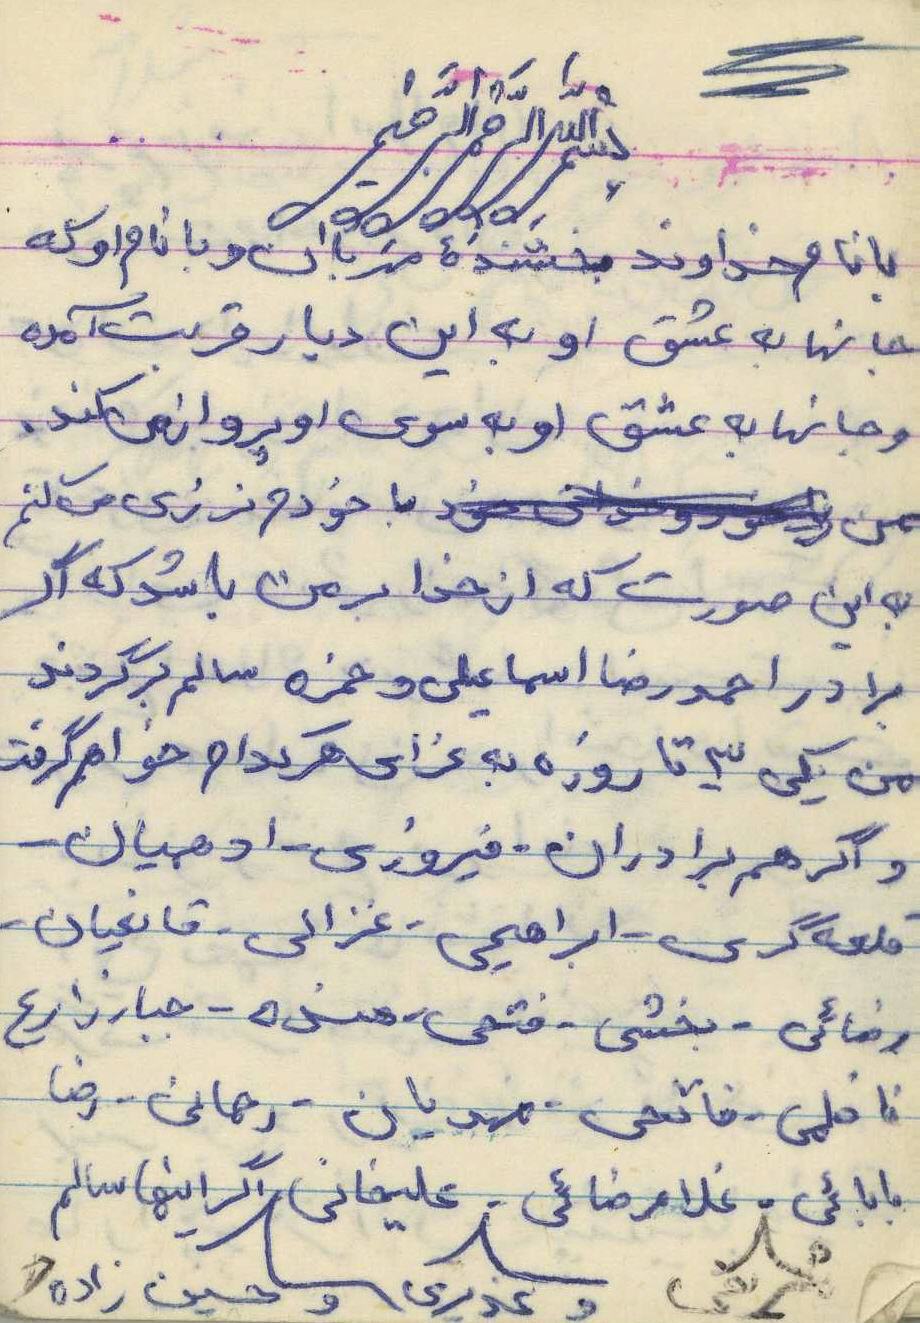 بسم الله الرحمن الرحیم
با نام خداوند بخشندهٔ مهربان و با نام او که
جانها به عشق او به این دیار قربت آمده
و جانها به عشق او به سوی او پرواز می کند.
من با خودم نذری می کنم
به این صورت که از خدا بر من باشد که اگر
برادر احمد رضا اسماعیلی و حمزه سالم برگردند
من یکی ۳ تا روزه به عزای هرکدام خواهم گرفت
و اگر هم برادران - فیروزی - ادهمیان -
قلعه گری - ابراهیمی - غزالی - قانعیان -
رضائی - بخشی - فتحی - - جبار زارع
- فاتحی - مهدیان - رحمانی - رضا
بابائی - غلامرضائی - علیخانی اگر اینها سالم
و غدیری و حسین زاده